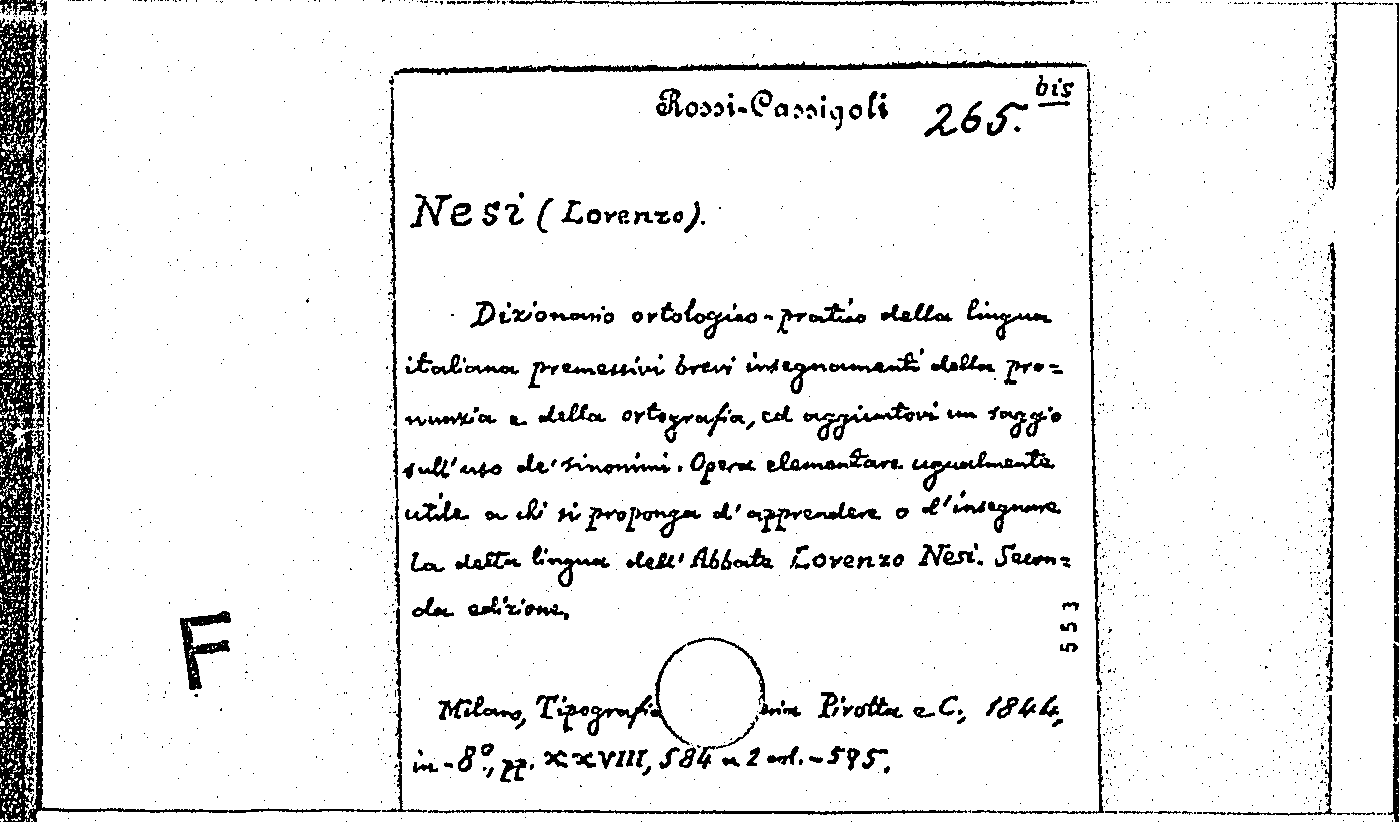 Rossi-Cassigoli 265. bis
Nesi (Lorenzo).
Dizionario ortologico-pratico della lingua
italiana premessivi brevi insegnamenti della pro=
nunzia e della ortografia, ed aggiuntovi un saggio
sull'uso de' sinonimi. Opera elementare ugualmente
utile a chi si proponga d'apprendere o d'insegnare
la detta lingua dell'Abbate Lorenzo Nesi. Secon=
da edizione.
553
F
Milano, Tipografia Pirotta e C., 1844,
in-8°, pp. XXVIII, 584 a 2 col. - 595.